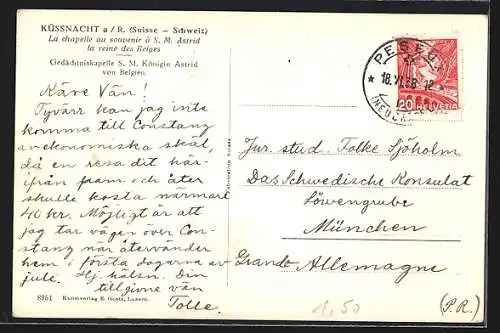 KÜSSNACHT a / R. (Suisse – Schweiz)
La chapelle au souvenir à S. M. Astrid
la reine des Belges
Gedächtniskapelle S. M. Königin Astrid
von Belgien
Käre Vän!
Tyvärr kan jag inte
komma till Constanz
av ekonomiska skäl,
då en resa dit här-
ifrån fram och åter
skulle kosta närmare
40 kr. Möjligt är att
jag tar vägen över Con-
stanz när återvänder
hem i första dagarna av
jule. Hj. hälsn. Din
tillgivne vän
Tolle.
8351 Kunstverlag E. Goetz, Luzern.
PESEUX
18.VI.38-12
20 HELVETIA
Jur. stud. Folke Sjöholm
Das Schwedische Konsulat
Löwengrube
München
Grande Allemagne
(P.R.)
1,50